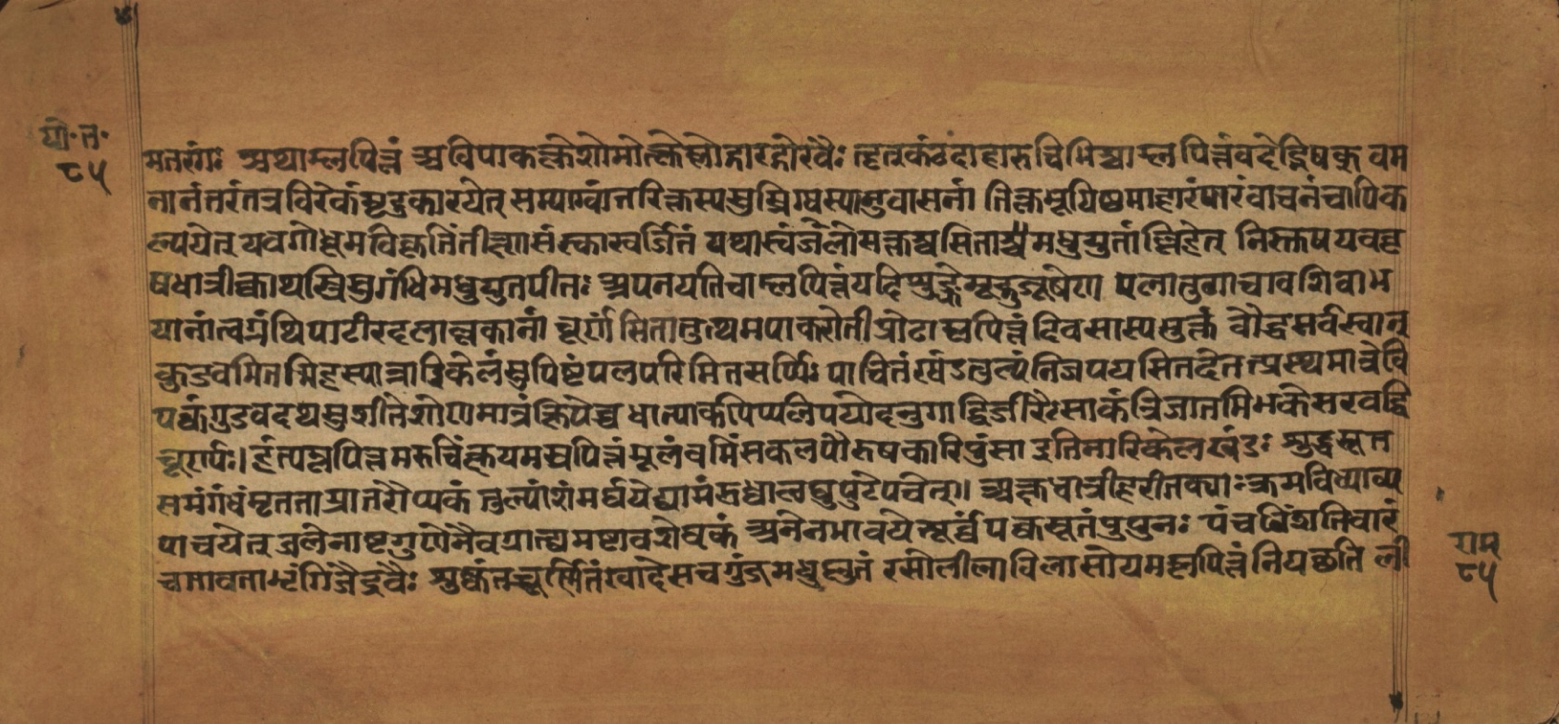 यो॰त॰
८५
मतसां: अथाम्लपित्तं अविपाकक्लेशोमोत्क्लेशो हृत्कंठदाहारुचिभिश्चाम्लपित्तंवदेद्भिषक् वम
नानंतरंतत्रविरेकंमृदुकारयेत् सम्यग्वांतविरिक्तस्यसुस्निग्धस्यानुवासनं तिक्तभूयिष्ठमाहारंपानंवाचनंचापिक
ल्पयेत् यवगोधूमविकृतिंतीक्ष्णसंस्कारवर्जितं यथास्वं मधुयुतांल्लिहेत् निस्तुषयववृ
षधात्रीक्वाथस्त्रिसुगंधिमधुयुतपीतः अपनयतिचाम्लपित्तंयदि एलातुगाचावशिवाभ
यानांत्वग्रंथिपाटीरदलाम्लकानां चूर्णं सितातुल्यमपाकरोती प्रौढाम्लपित्तं दिवसास्यभुक्तं बौद्धसर्वस्वात्
कुडवमितमिहस्यान्नारिकेलंसुपिष्टंपलपरिमितसर्पिः पाचितंखंडतुल्यंनिजपयसितदेतत्प्रस्थमात्रेवि
पक्वंगुडवदथसुशीतेशोणमात्रंक्षिपेच्च धान्याकपिप्पलिपयोदतुगाद्विजीरैःसाकंत्रिजातमिभकेसरवद्वि
चूर्ण्यः। हंत्यम्लपित्तमरुचिंक्षयमस्रपित्तंशूलंवमिंसकलपौरुषकारिपुंसां इतिनारिकेलखंडः शुद्धसूत
समंगंधंमृतताम्राभ्ररौप्यकं तुल्यांशंमर्धयेद्यामंरुध्वालघुपुटेपचेत्॥ अक्षधात्रीहरीतक्याःक्रमविध्याव्य
पाचयेत् जलेनाष्टगुणेनैवग्राह्यमष्टावशेषकं अनेनभावयेत्पूर्वंपक्वसूतंपुपुनः पंचविंशतिवारं
चतावताभृंगिजैद्रवैः शुष्कंतच्चूर्णितंखादेसचगुंजमधुप्लुतं रसोलीलाविलासोयमम्लपित्तंनियछति ली
राम
८५